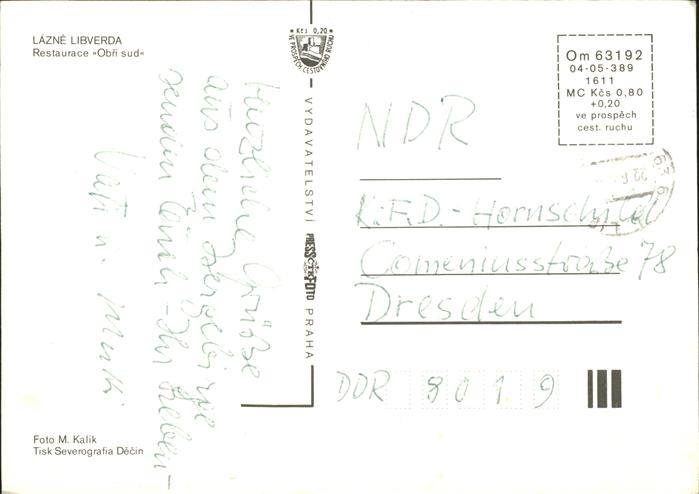 LÁZNĚ LIBVERDA
Restaurace »Obří sud«
Kčs 0,20
VE PROSPĚCH CESTOVNÍHO RUCHU
Om 63192
04-05-389
1611
MC Kčs 0,80
+0,20
ve prospěch
cest. ruchu
Herzliche Grüße
aus dem Isergebirge
Ihr
VYDAVATELSTVÍ
PRESSFOTO
PRAHA
NDR
K.F.D.-Hornschild
Comeniusstraße 78
Dresden
DDR 8019
Foto M. Kalik
Tisk Severografia Děčín